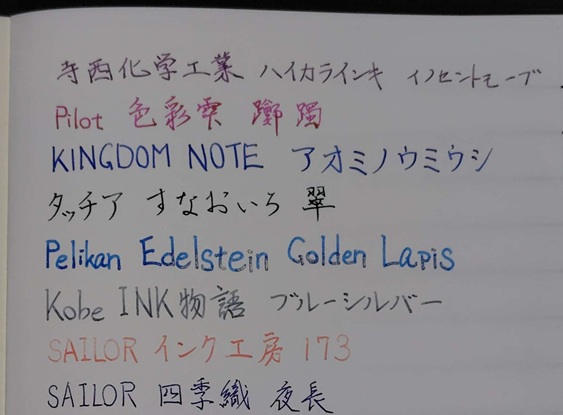 寺西化学工業 ハイカラインキ イノセントモーブ
Pilot 色彩雫 躑躅
KINGDOM NOTE アオミノウミウシ
タッチア すなおいろ 翠
Pelikan Edelstein Golden Lapis
Kobe INK物語 ブルーシルバー
SAILOR インク工房 173
SAILOR 四季織 夜長